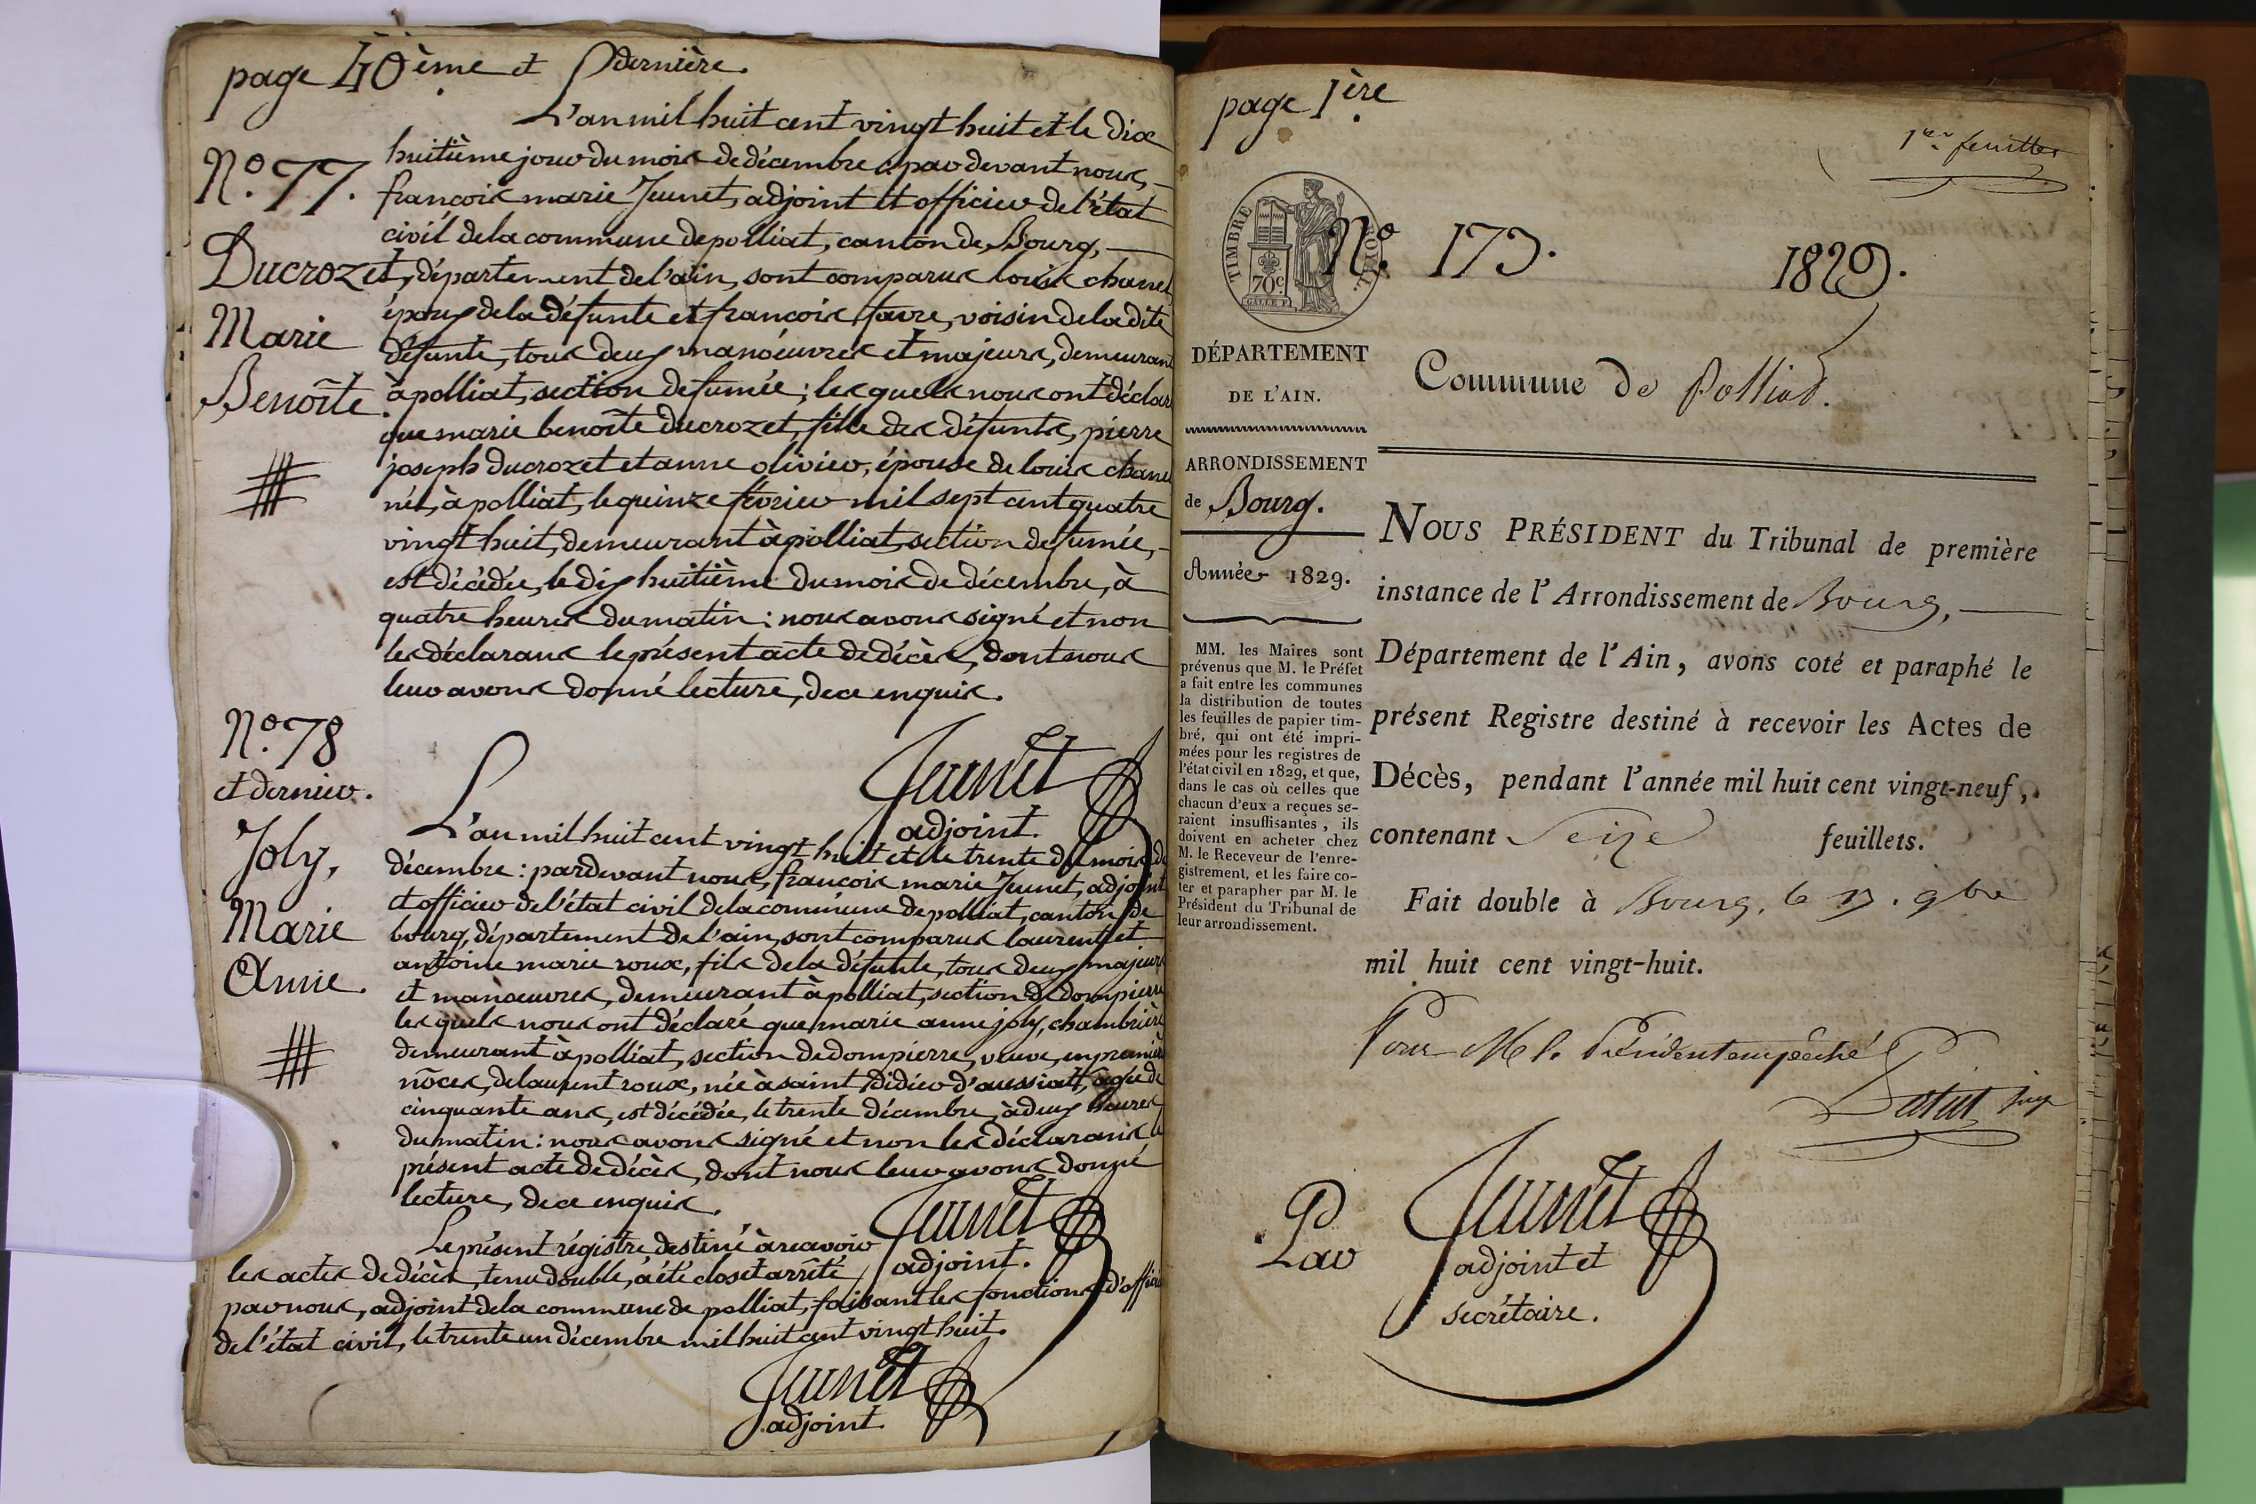 page 40ème et dernière.
L'an mil huit cent vingt huit et le dix
huitième jour du mois de décembre : par devant nous,
N.° 77.
françois marie Jeunet, adjoint et officier de l'état
civil de la commune de polliat, canton de Bourg,
Ducrozet,
département de l'ain, sont comparus louis chanel
époux de la défunte et françois favre, voisin de la dite
Marie
défunte, tous deux manœuvres et majeurs, demeurant
Benoîte.
à polliat, section de fumée ; les quels nous ont déclaré
que marie benoîte ducrozet, fille des défunts, pierre
joseph ducrozet et anne olivier, épouse de louis chanel
née, à polliat, le quinze février mil sept cent quatre
vingt huit, demeurant à polliat, section de fumée,
est décédée, le dix huitième du mois de décembre, à
quatre heures du matin : nous avons signé et non
les déclarans le présent acte de décès, dont nous
leur avons donné lecture, de ce enquis.
Jeunet
adjoint.
N.° 78
et dernier.
Joly,
Marie
Anne.
L'an mil huit cent vingt huit et le trente du mois de
décembre : pardevant nous, françois marie Jeunet, adjoint
et officier de l'état civil de la commune de polliat, canton de
bourg, département de l'ain, sont comparus laurent et
antoine marie roux, fils de la défunte, tous deux majeurs
et manœuvres, demeurant à polliat, section de dompierre
les quels nous ont déclaré que marie anne joly, chambrière
demeurant à polliat, section de dompierre, veuve, en premières
nôces, de laurent roux, née à saint Didier d'aussiat, agée de
cinquante ans, est décédée, le trente décembre, à deux heures
du matin : nous avons signé et non les déclarans le
présent acte de décès, dont nous leur avons donné
lecture, de ce enquis.
Jeunet
adjoint.
Le présent régistre destiné à recevoir
les actes de décès, tenu double, a été clos et arrêté
par nous, adjoint de la commune de polliat, faisant les fonctions d'officier
de l'état civil, le trente un décembre mil huit cent vingt huit.
Jeunet
adjoint
page 1ère
1er feuillet
TIMBRE ROYAL
70c
N.° 173.
1829.
DÉPARTEMENT
DE L'AIN.
Commune de Polliat.
ARRONDISSEMENT
de Bourg.
Année 1829.
MM. les Maires sont
prévenus que M. le Préfet
a fait entre les communes
la distribution de toutes
les feuilles de papier tim-
bré, qui ont été impri-
mées pour les registres de
l'état civil en 1829, et que,
dans le cas où celles que
chacun d'eux a reçues se-
raient insuffisantes, ils
doivent en acheter chez
M. le Receveur de l'enre-
gistrement, et les faire co-
ter et parapher par M. le
Président du Tribunal de
leur arrondissement.
NOUS PRÉSIDENT du Tribunal de première
instance de l'Arrondissement de Bourg,
Département de l'Ain, avons coté et paraphé le
présent Registre destiné à recevoir les Actes de
Décès, pendant l'année mil huit cent vingt-neuf,
contenant Seize feuillets.
Fait double à Bourg, le 9bre
mil huit cent vingt-huit.
Pour M. le Président empêché
juge
Par
Jeunet
adjoint et
secrétaire.